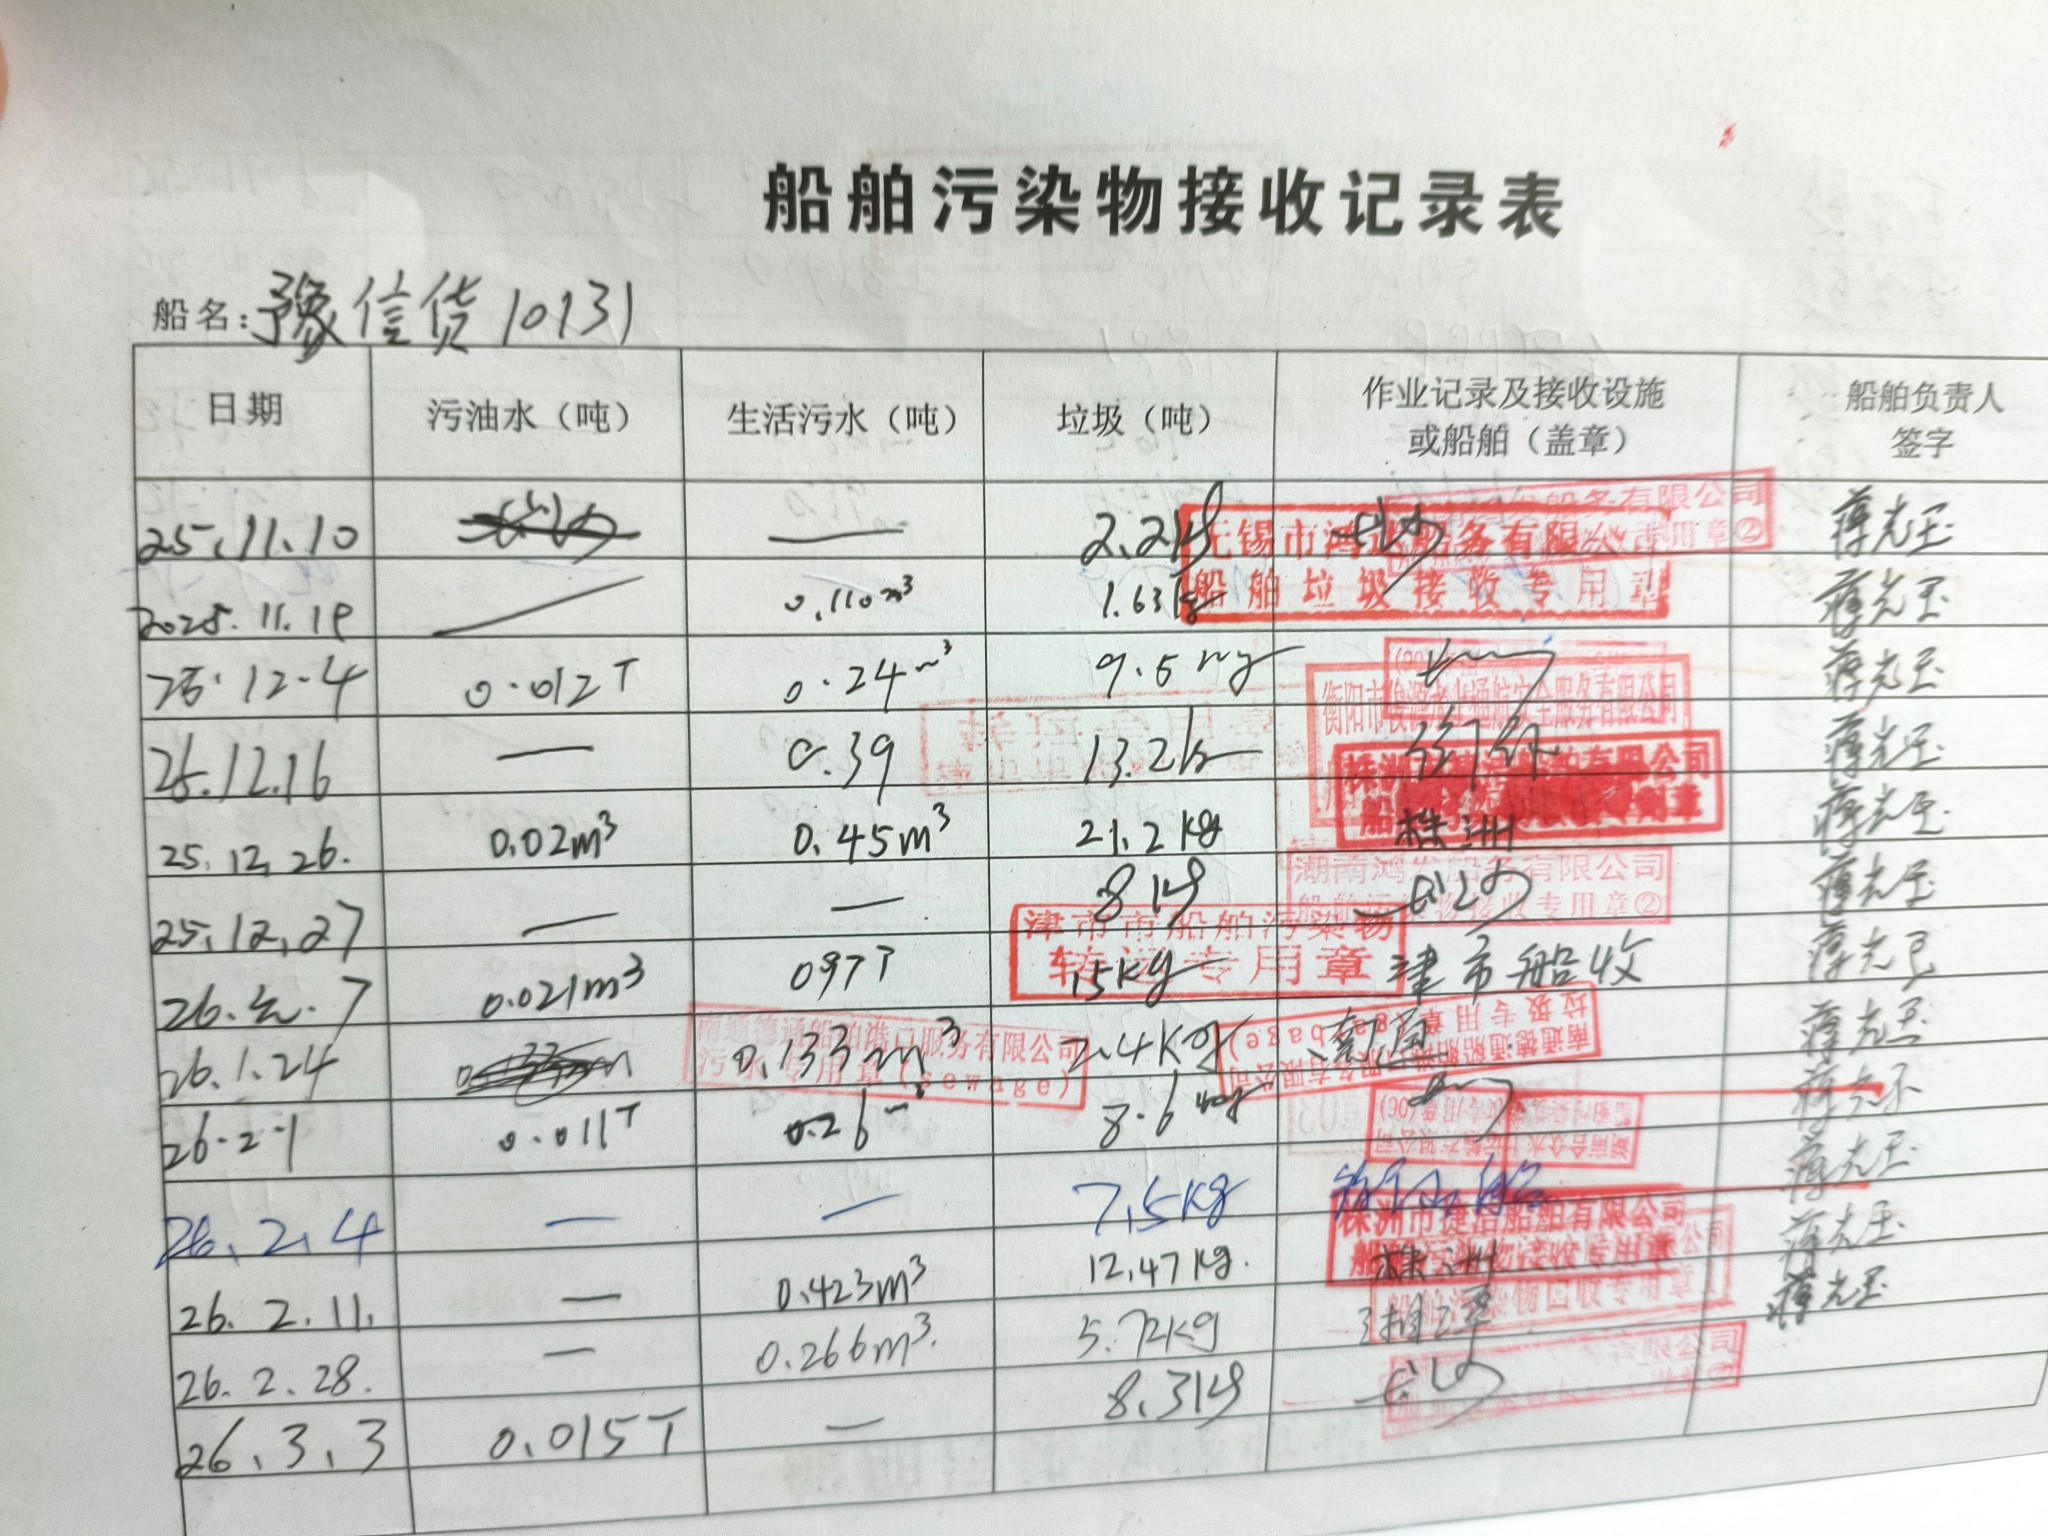 船舶污染物接收记录表
船名：豫信货10131
日期 污油水（吨） 生活污水（吨） 垃圾（吨） 作业记录及接收设施或船舶（盖章） 船舶负责人签字
25.11.10 — 2.2kg 无锡市鸿 船务有限公 船舶垃圾接收专用章 船务有限公司 用章② 薄光玉
2025.11.19 0.110m³ 1.63kg 薄光玉
25.12.4 0.012T 0.24m³ 9.5kg 薄光玉
衡阳市 服务有限公司
25.12.16 — 0.39 13.2k 薄光玉
株洲 船舶有限公司
25.12.26. 0.02m³ 0.45m³ 21.2kg 株洲 薄光玉
湖南鸿发船务有限公司
船舶污染物接收专用章②
25.12.27 — — 8kg 薄光玉
津市市船舶污染物
转运专用章
26.元.7 0.021m³ 097T 15kg 津市船收 薄光玉
南通德通船舶港口服务有限公司
污水专用章(sewage)
南通德通船舶港口服务有限公司
垃圾专用章(garbage)
26.1.24 0.133m³ 2.4kg 薄光玉
26.2.1 0.011T 0.26m³ 8.6kg 薄光玉
26.2.4 — — 7.5kg 薄光玉
株洲市捷洁船舶有限公司
船舶污染物接收专用章
26.2.11. — 0.423m³ 12.47kg. 株洲 薄光玉
船舶污染物回收专用章
26.2.28. — 0.266m³. 5.72kg 湘潭 薄光玉
有限公司
26.3.3 0.015T — 8.3kg